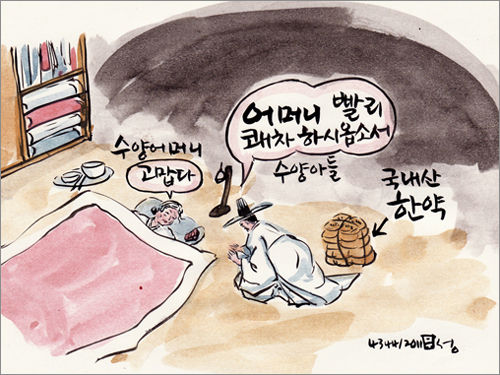 어머니 빨리
쾌차 하시옵소서
수양아들
수양어머니
고맙다
국내산
한약